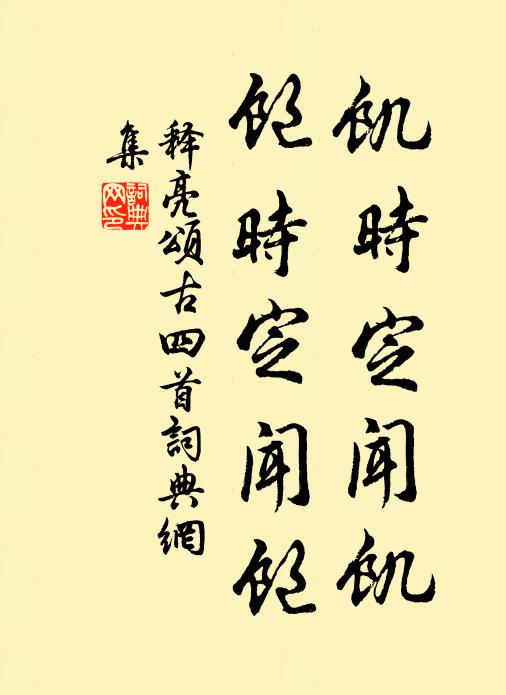 飢時定聞飢
飽時定聞飽
释亮頌古四首詞典網
集
詞典
网印